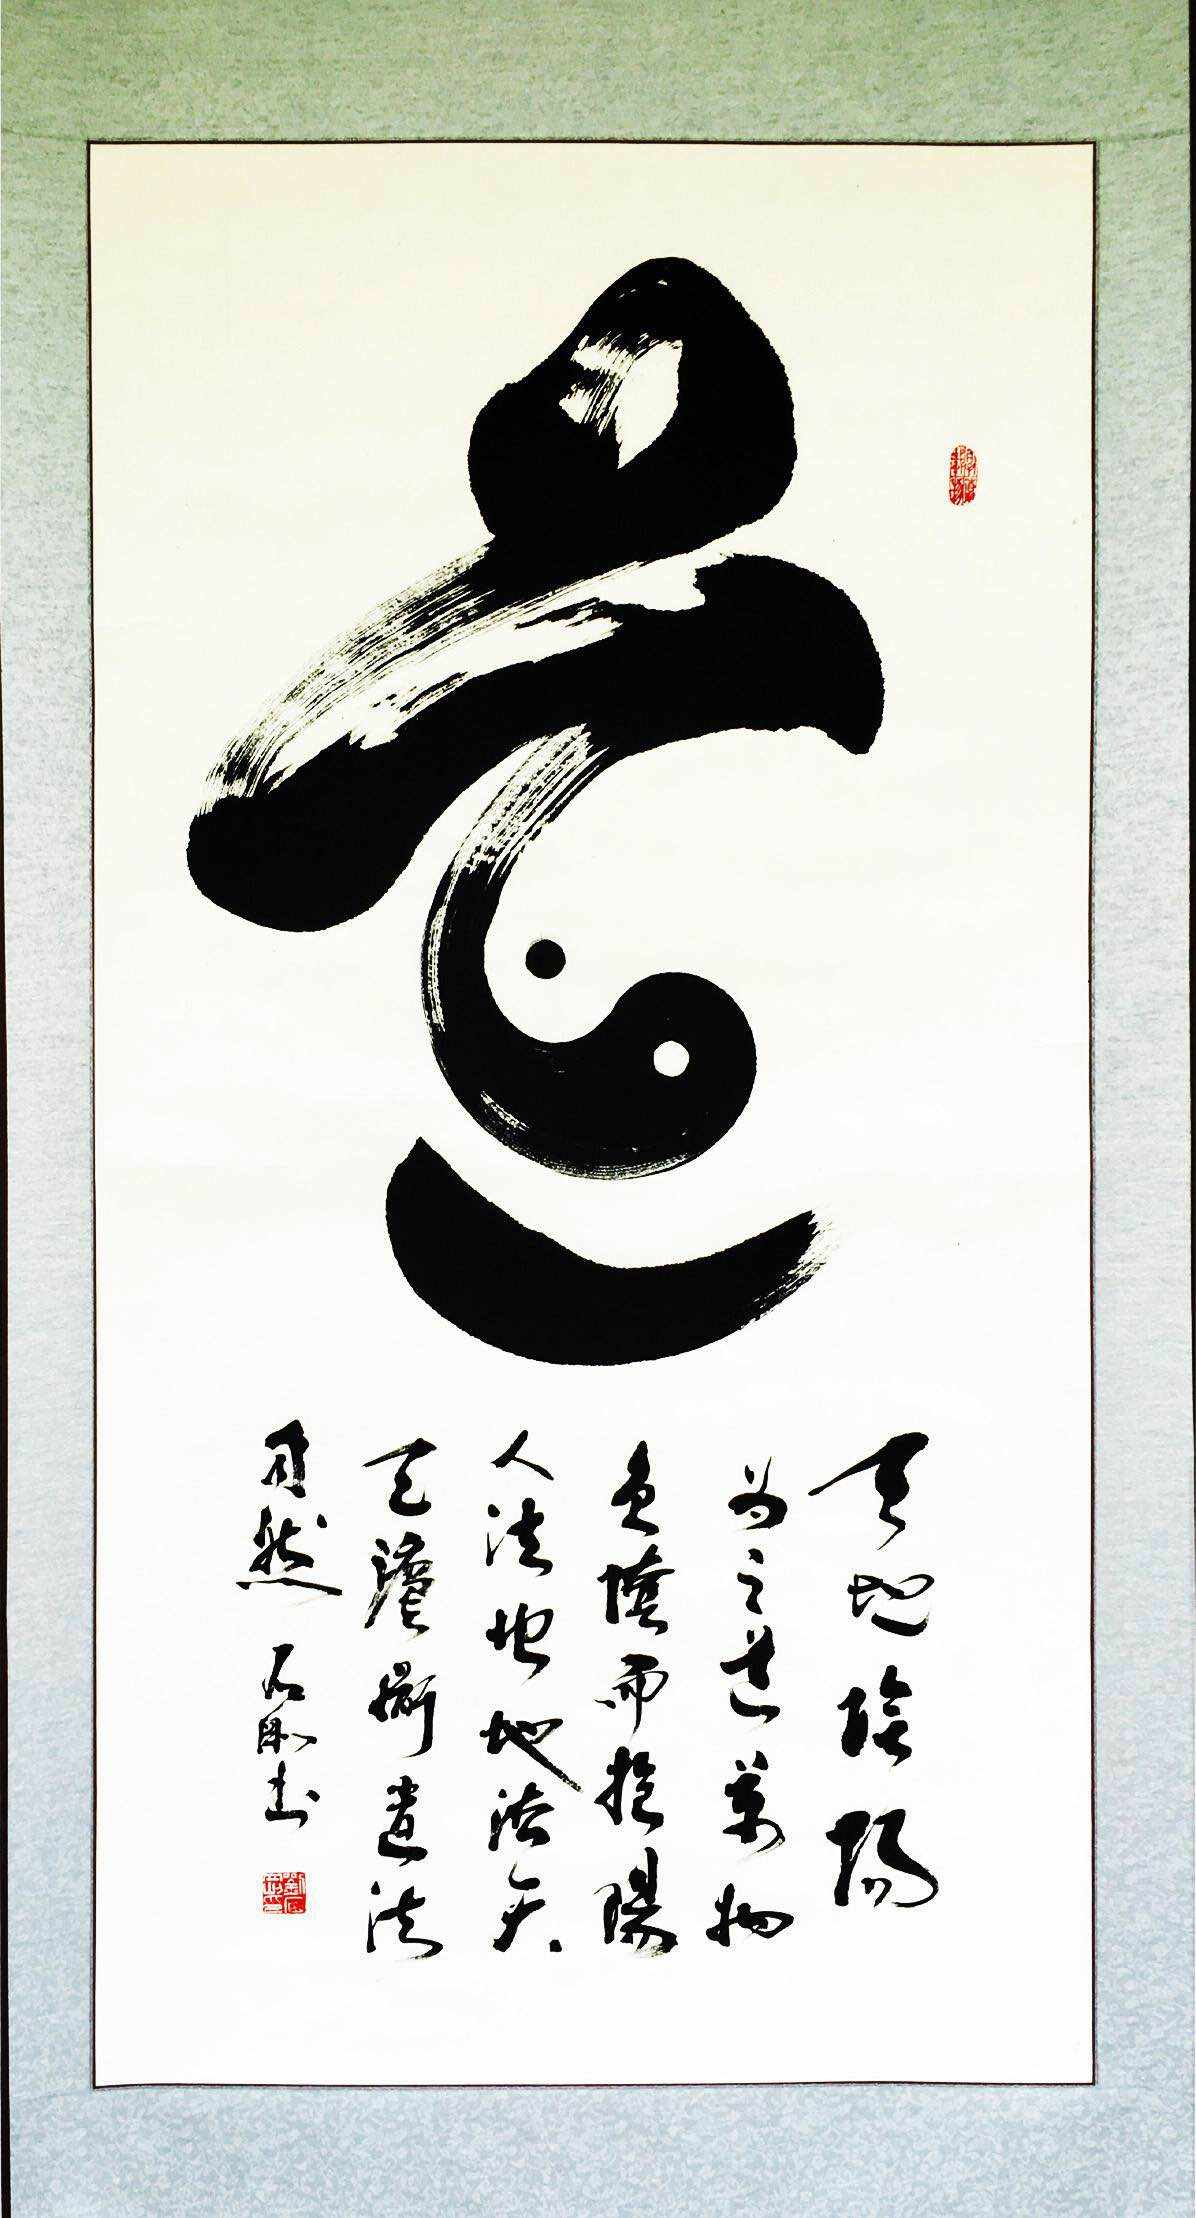 天地陰陽
為之道萬物
負陰而抱陽
人法地地法天
天灋衟道法
自然 石剛书